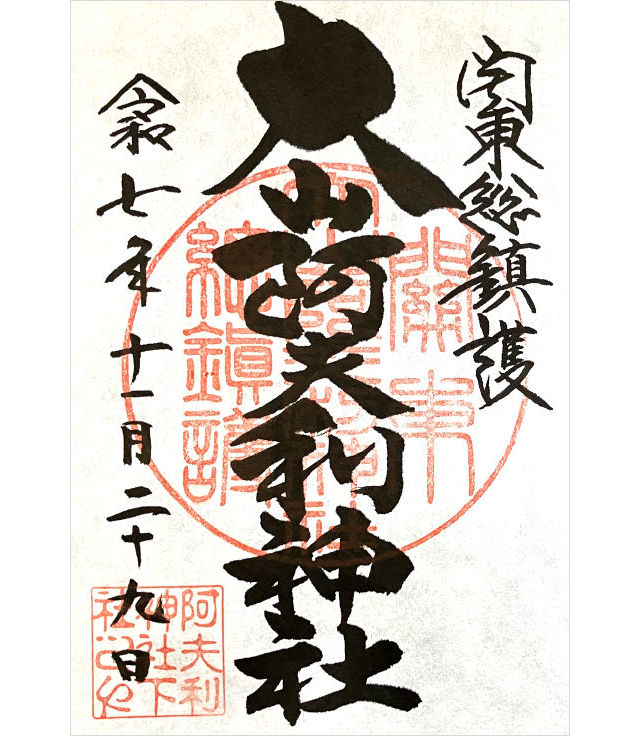 関東総鎮護
大山阿夫利神社
令和七年十一月二十九日
關東
総鎮護
阿夫利
神社下
社